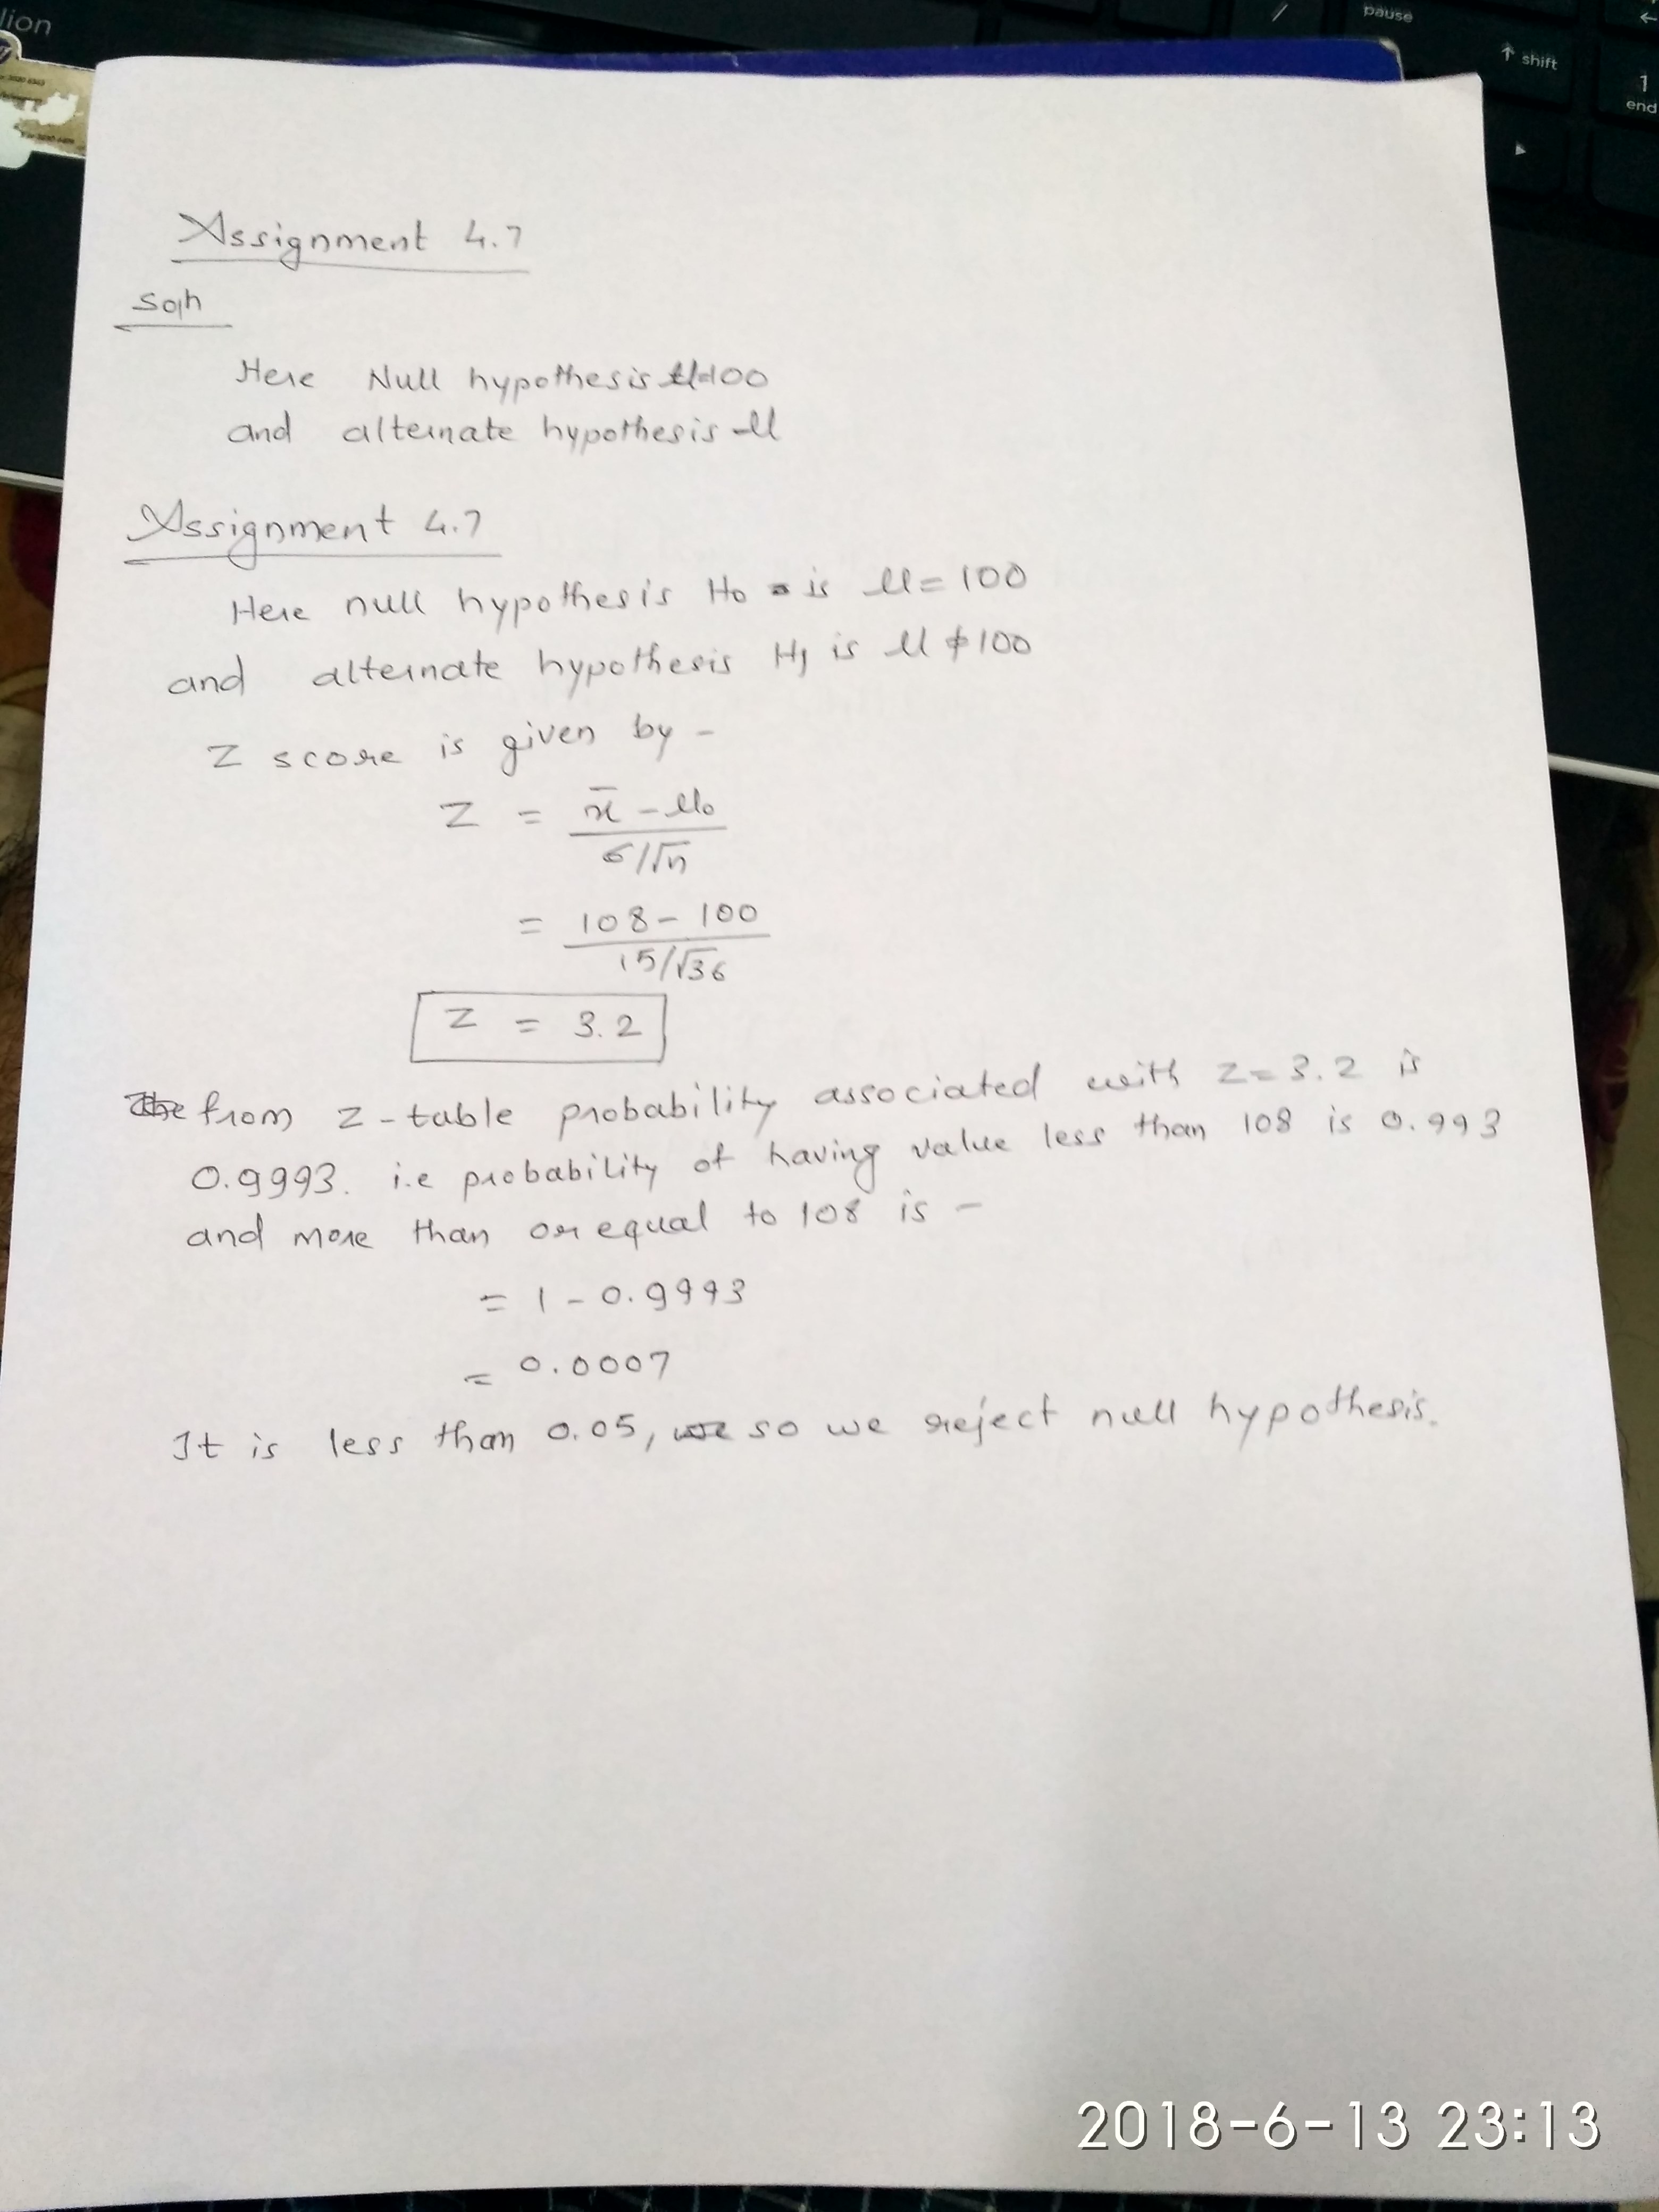 lion
pause
/
shift
1
end
Assignment 4.7
Soln
Here Null hypothesis μ=100
and alternate hypothesis μ
Assignment 4.7
Here null hypothesis H₀ is μ = 100
and alternate hypothesis H₁ is μ ≠ 100
Z score is given by -
Z = (x̄ - μ₀) / (σ/√n)
= (108 - 100) / (15/√36)
Z = 3.2
The from Z-table probability associated with Z=3.2 is
0.9993. i.e probability of having value less than 108 is 0.993
and more than or equal to 108 is -
= 1 - 0.9993
= 0.0007
It is less than 0.05, we so we reject null hypothesis.
2018-6-13 23:13